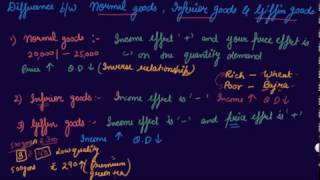 Diffirance b/w Normal goods, Inferior goods & Giffin goods
1) Normal goods :- Income effect '+' and your price effect is
20,000/- 25,000 '-' on the quantity demand
Price ↑ Q.D ↓ (Inverse relationship)
Rich - Wheat
Poor - Bajra
2) Inferior goods :- Income effect is '-' Income ↑ Q.D ↓
3) Giffin goods :- Income effect is '-' and price effect is '+'
Income ↑ Q.D ↓
low quality
500gms ₹ 290 ↑ (premium
green tea)